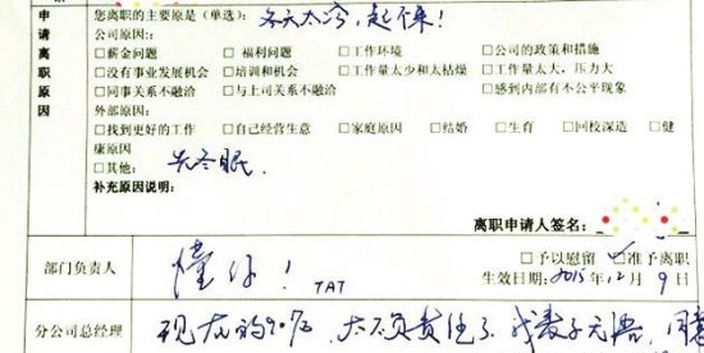 您离职的主要原是(单选): 冬天太冷,起不来!
公司原因::
□薪金问题 □ 福利问题 □工作环境 □公司的政策和措施
□没有事业发展机会 □培训和机会 □工作量太少和太枯燥 □工作量太大,压力大
□同事关系不融洽 □与上司关系不融洽 □感到内部有不公平现象
外部原因:
□找到更好的工作 □自己经营生意 □家庭原因 □结婚 □生育 □回校深造 □健
康原因
□其他: 先冬眠.
补充原因说明:
申请离职原因
离职申请人签名:
部门负责人 懂你! TAT □予以慰留 □准予离职
生效日期: 2015年12月9日
分公司总经理 现在的90后,太不负责任了,我表示无语,同意